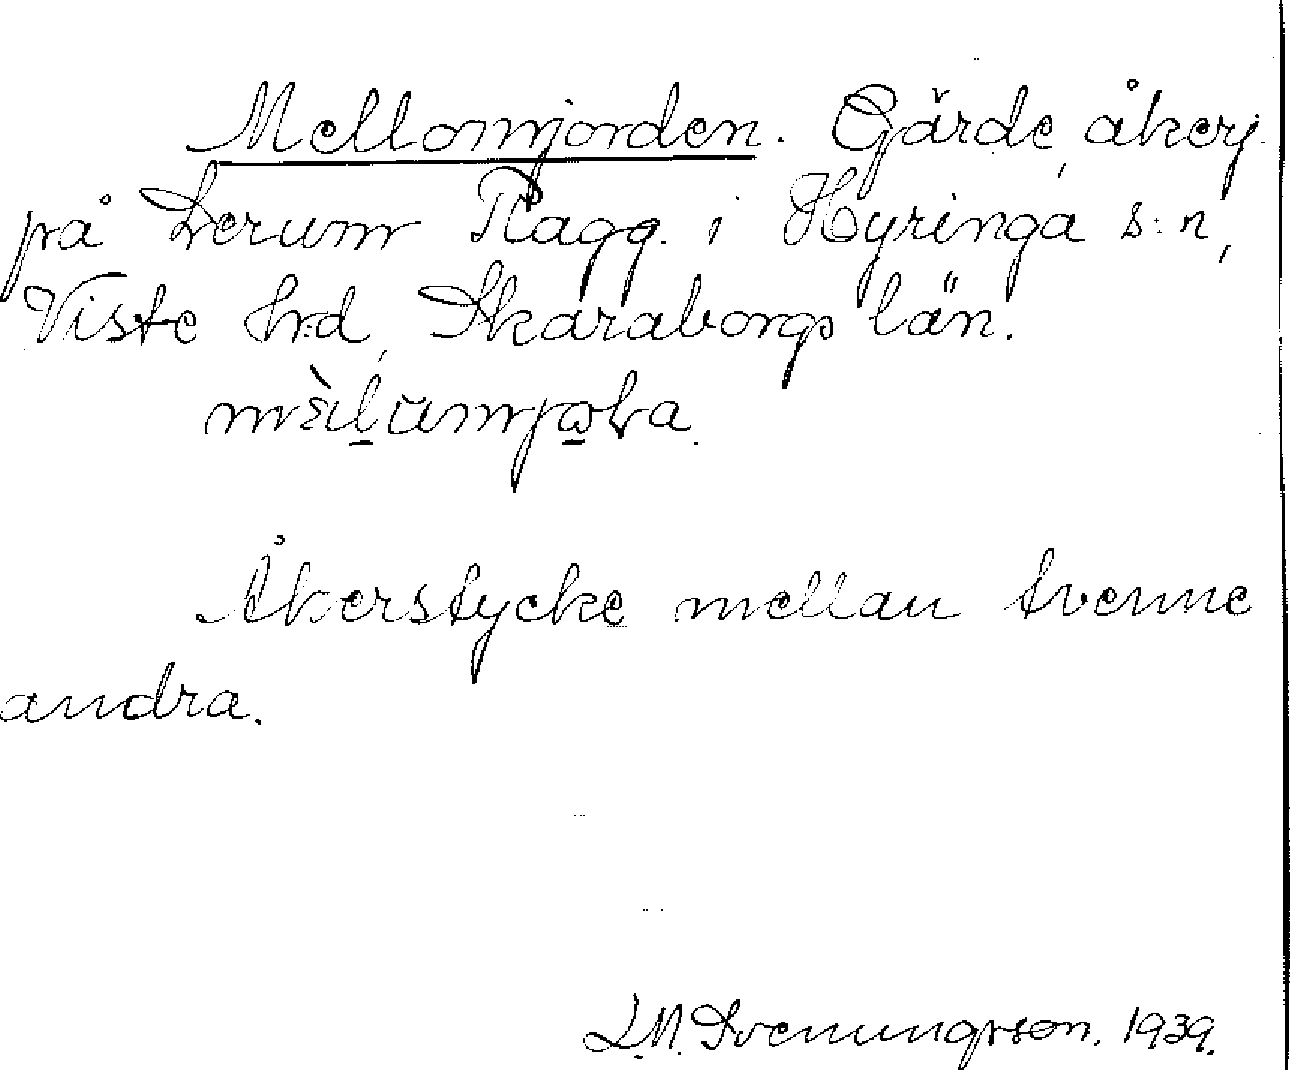 Mellomjorden. Gärde, åkerj.
på Lerum Ragg. i Hyringa s:n,
Viste hd, Skaraborgs län.
Åkerstycke mellan tvenne
andra.
L.N. Svenungsson. 1939.